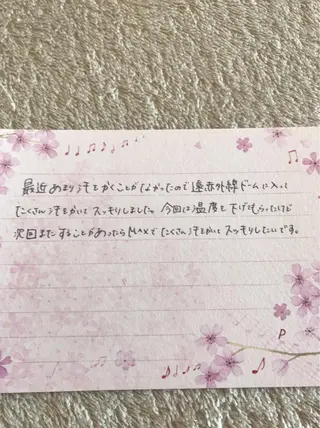 最近あまり汗をかくことがなかったので遠赤外線ドームに入って
たくさん汗をかいてスッキリしました。今回は温度を下げてもらったけど
次回またすることがあったらMAXでたくさん汗をかいてスッキリしたいです。